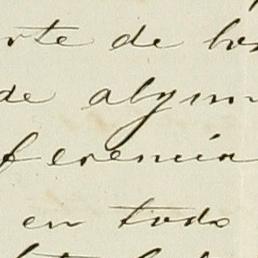 rte de los
de algun
ferencia
en todo